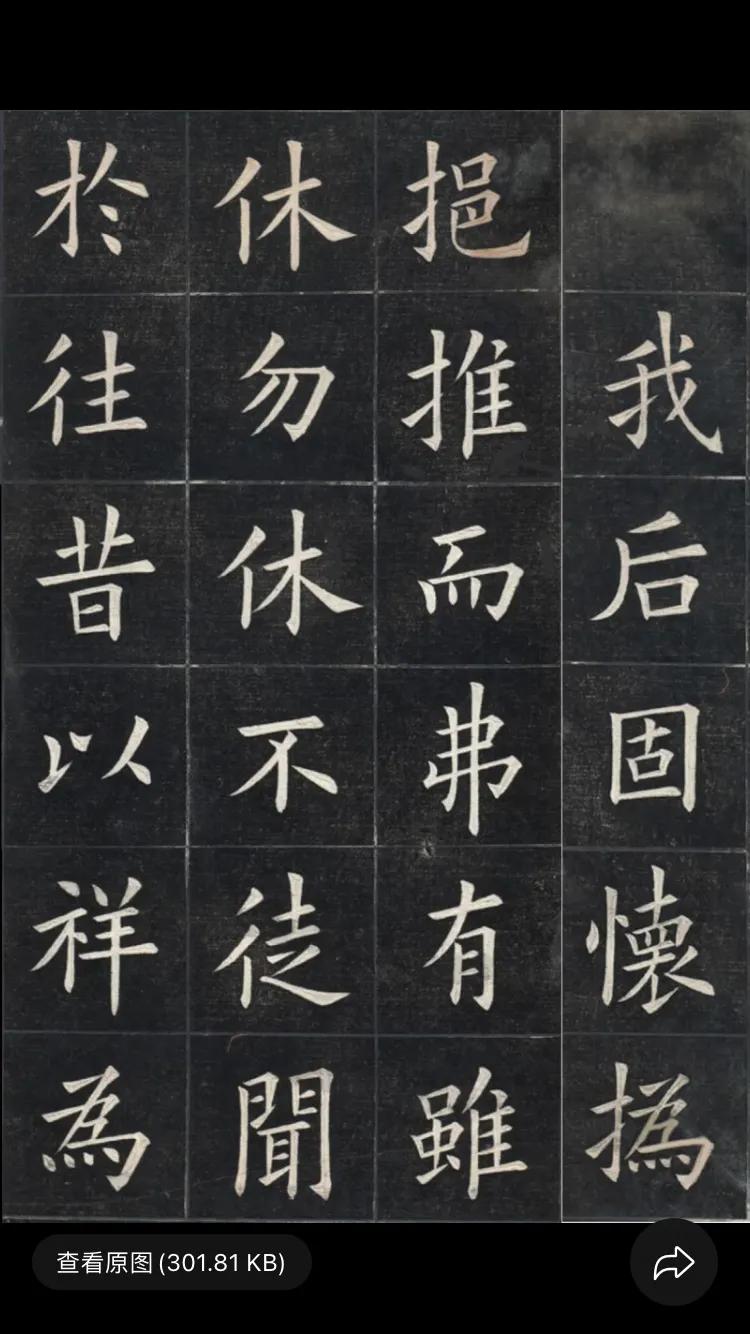 我后固懷撝
挹推而弗有雖
休勿休不徒聞
於往昔以祥為
查看原图 (301.81 KB)